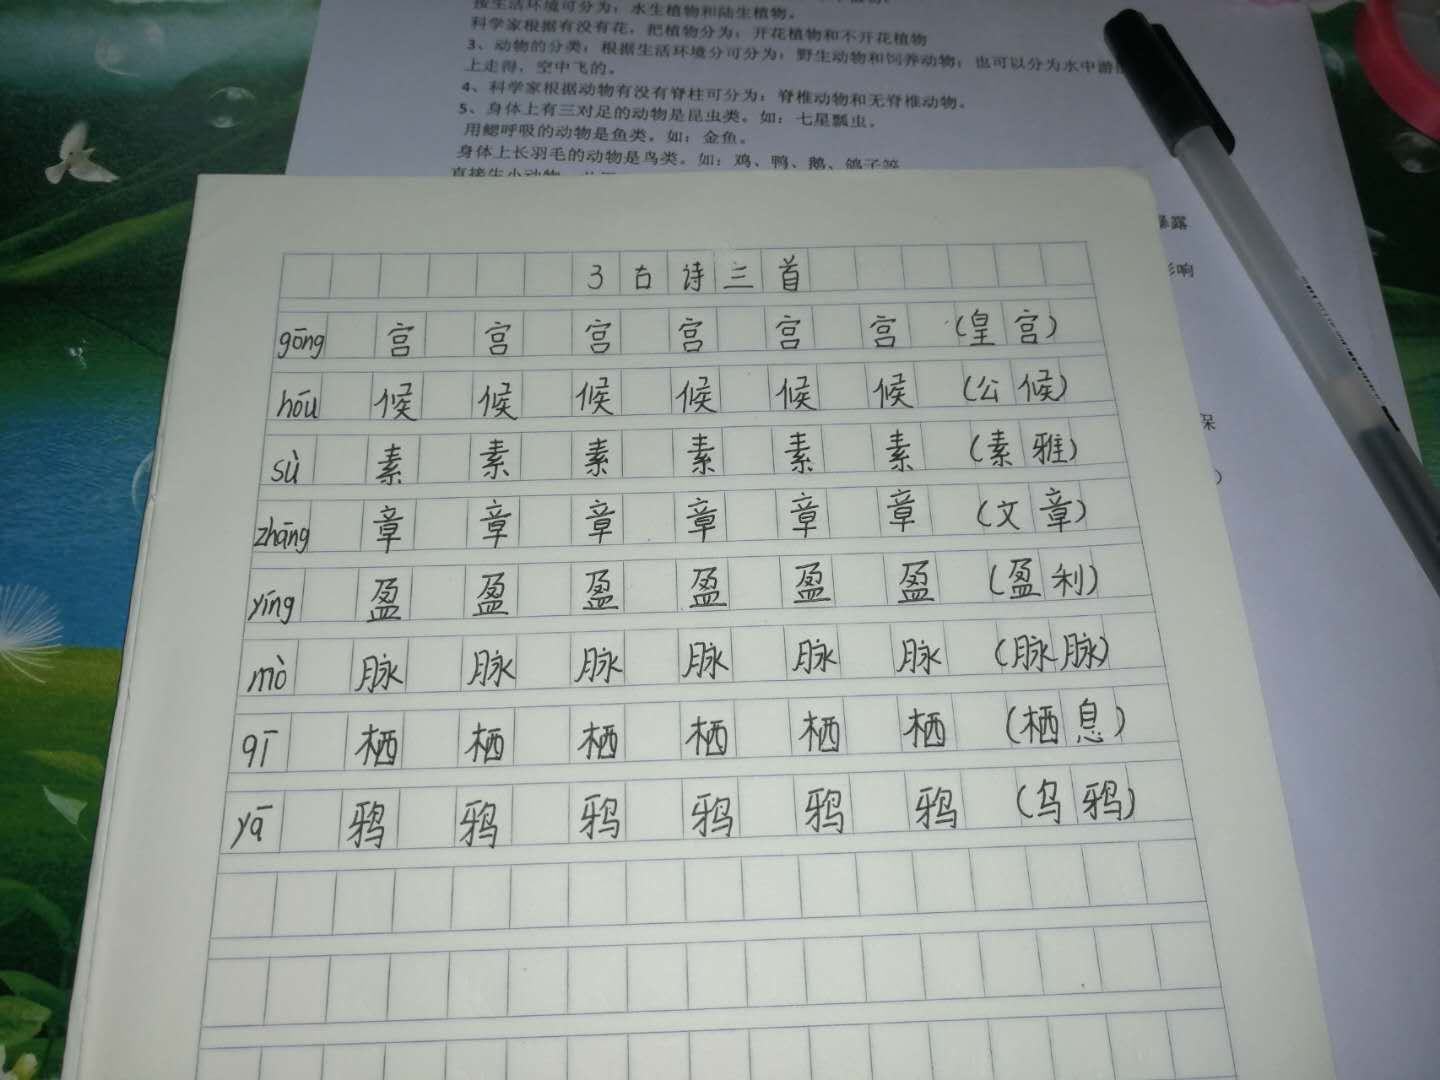 按生活环境可分为：水生植物和陆生植物。
科学家根据有没有花，把植物分为：开花植物和不开花植物
3、动物的分类：根据生活环境分可分为：野生动物和饲养动物；也可以分为水中游
上走得，空中飞的。
4、科学家根据动物有没有脊柱可分为：脊椎动物和无脊椎动物。
5、身体上有三对足的动物是昆虫类。如：七星瓢虫。
用鳃呼吸的动物是鱼类。如：金鱼。
身体上长羽毛的动物是鸟类。如：鸡、鸭、鹅、鸽子等
直接生小动物
暴露
影响
保
3 古诗三首
gōng 宫 宫 宫 宫 宫 宫 (皇宫)
hōu 候 候 候 候 候 候 (公候)
sù 素 素 素 素 素 素 (素雅)
zhāng 章 章 章 章 章 章 (文章)
yíng 盈 盈 盈 盈 盈 盈 (盈利)
mò 脉 脉 脉 脉 脉 脉 (脉脉)
qī 栖 栖 栖 栖 栖 栖 (栖息)
yā 鸦 鸦 鸦 鸦 鸦 鸦 (乌鸦)